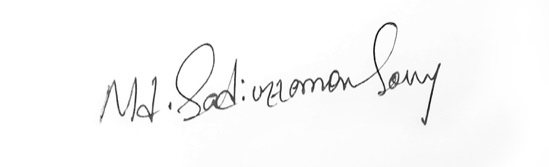 Md. Sadiuzzaman Sony